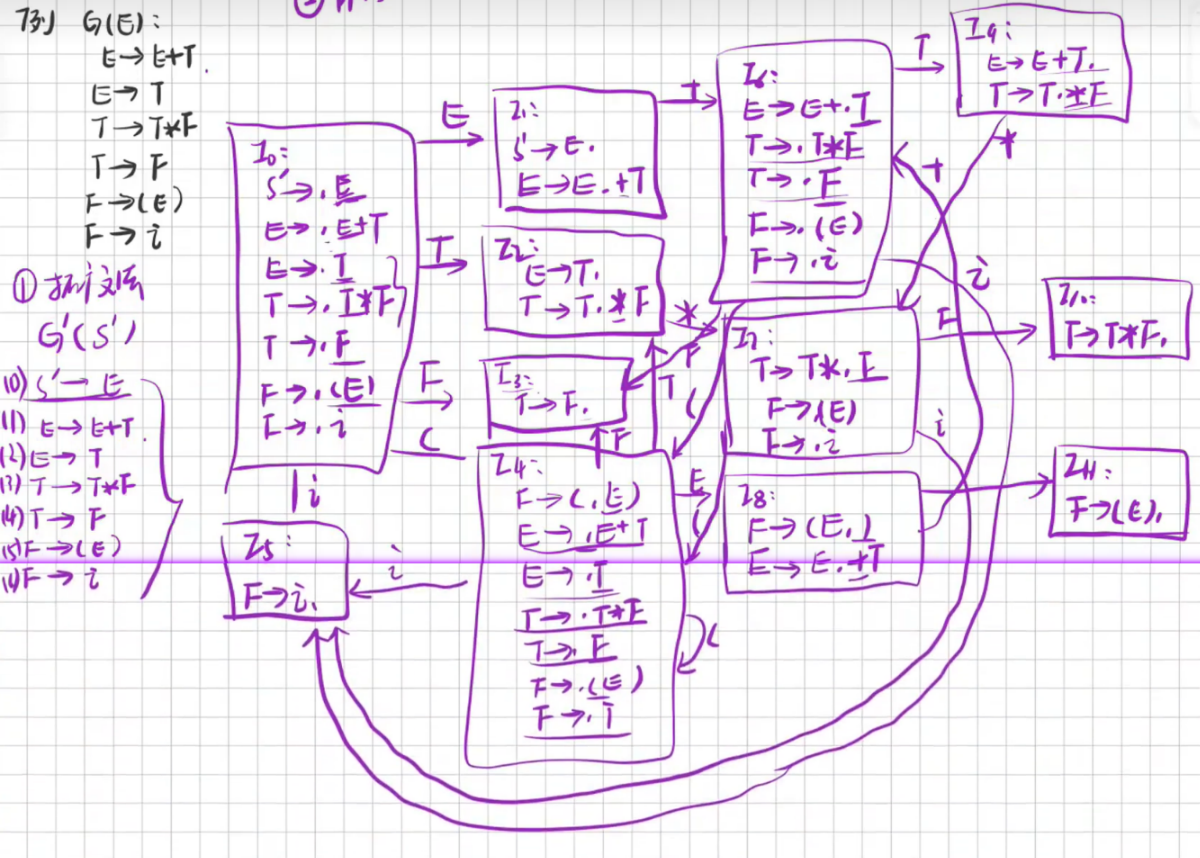 例 G(E):
E→E+T
E→T
T→T*F
T→F
F→(E)
F→i
① 拓广文法
G'(S')
(0) S'→E
(1) E→E+T
(2) E→T
(3) T→T*F
(4) T→F
(5) F→(E)
(6) F→i
I0:
S'→.E
E→.E+T
E→.T
T→.T*F
T→.F
F→.(E)
F→.i
E
T
F
(
i
I1:
S'→E.
E→E.+T
+
I2:
E→T.
T→T.*F
*
I3:
T→F.
I4:
F→(.E)
E→.E+T
E→.T
T→.T*F
T→.F
F→.(E)
F→.i
F
T
E
(
i
I5:
F→i.
I6:
E→E+.T
T→.T*F
T→.F
F→.(E)
F→.i
T
F
(
i
I7:
T→T*.F
F→.(E)
F→.i
F
(
i
I8:
F→(E.)
E→E.+T
+
I9:
E→E+T.
T→T.*F
*
I10:
T→T*F.
I11:
F→(E).